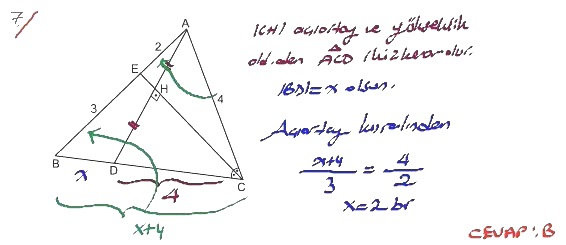 7/
A
2
E
H
3
4
B
D
C
x
4
x+4
|CH| açıortay ve yükseklik
old.dan ACD ikizkenardır.
|BD|=x olsun.
Açıortay kuralından
x+4/3 = 4/2
x=2 br
CEVAP: B